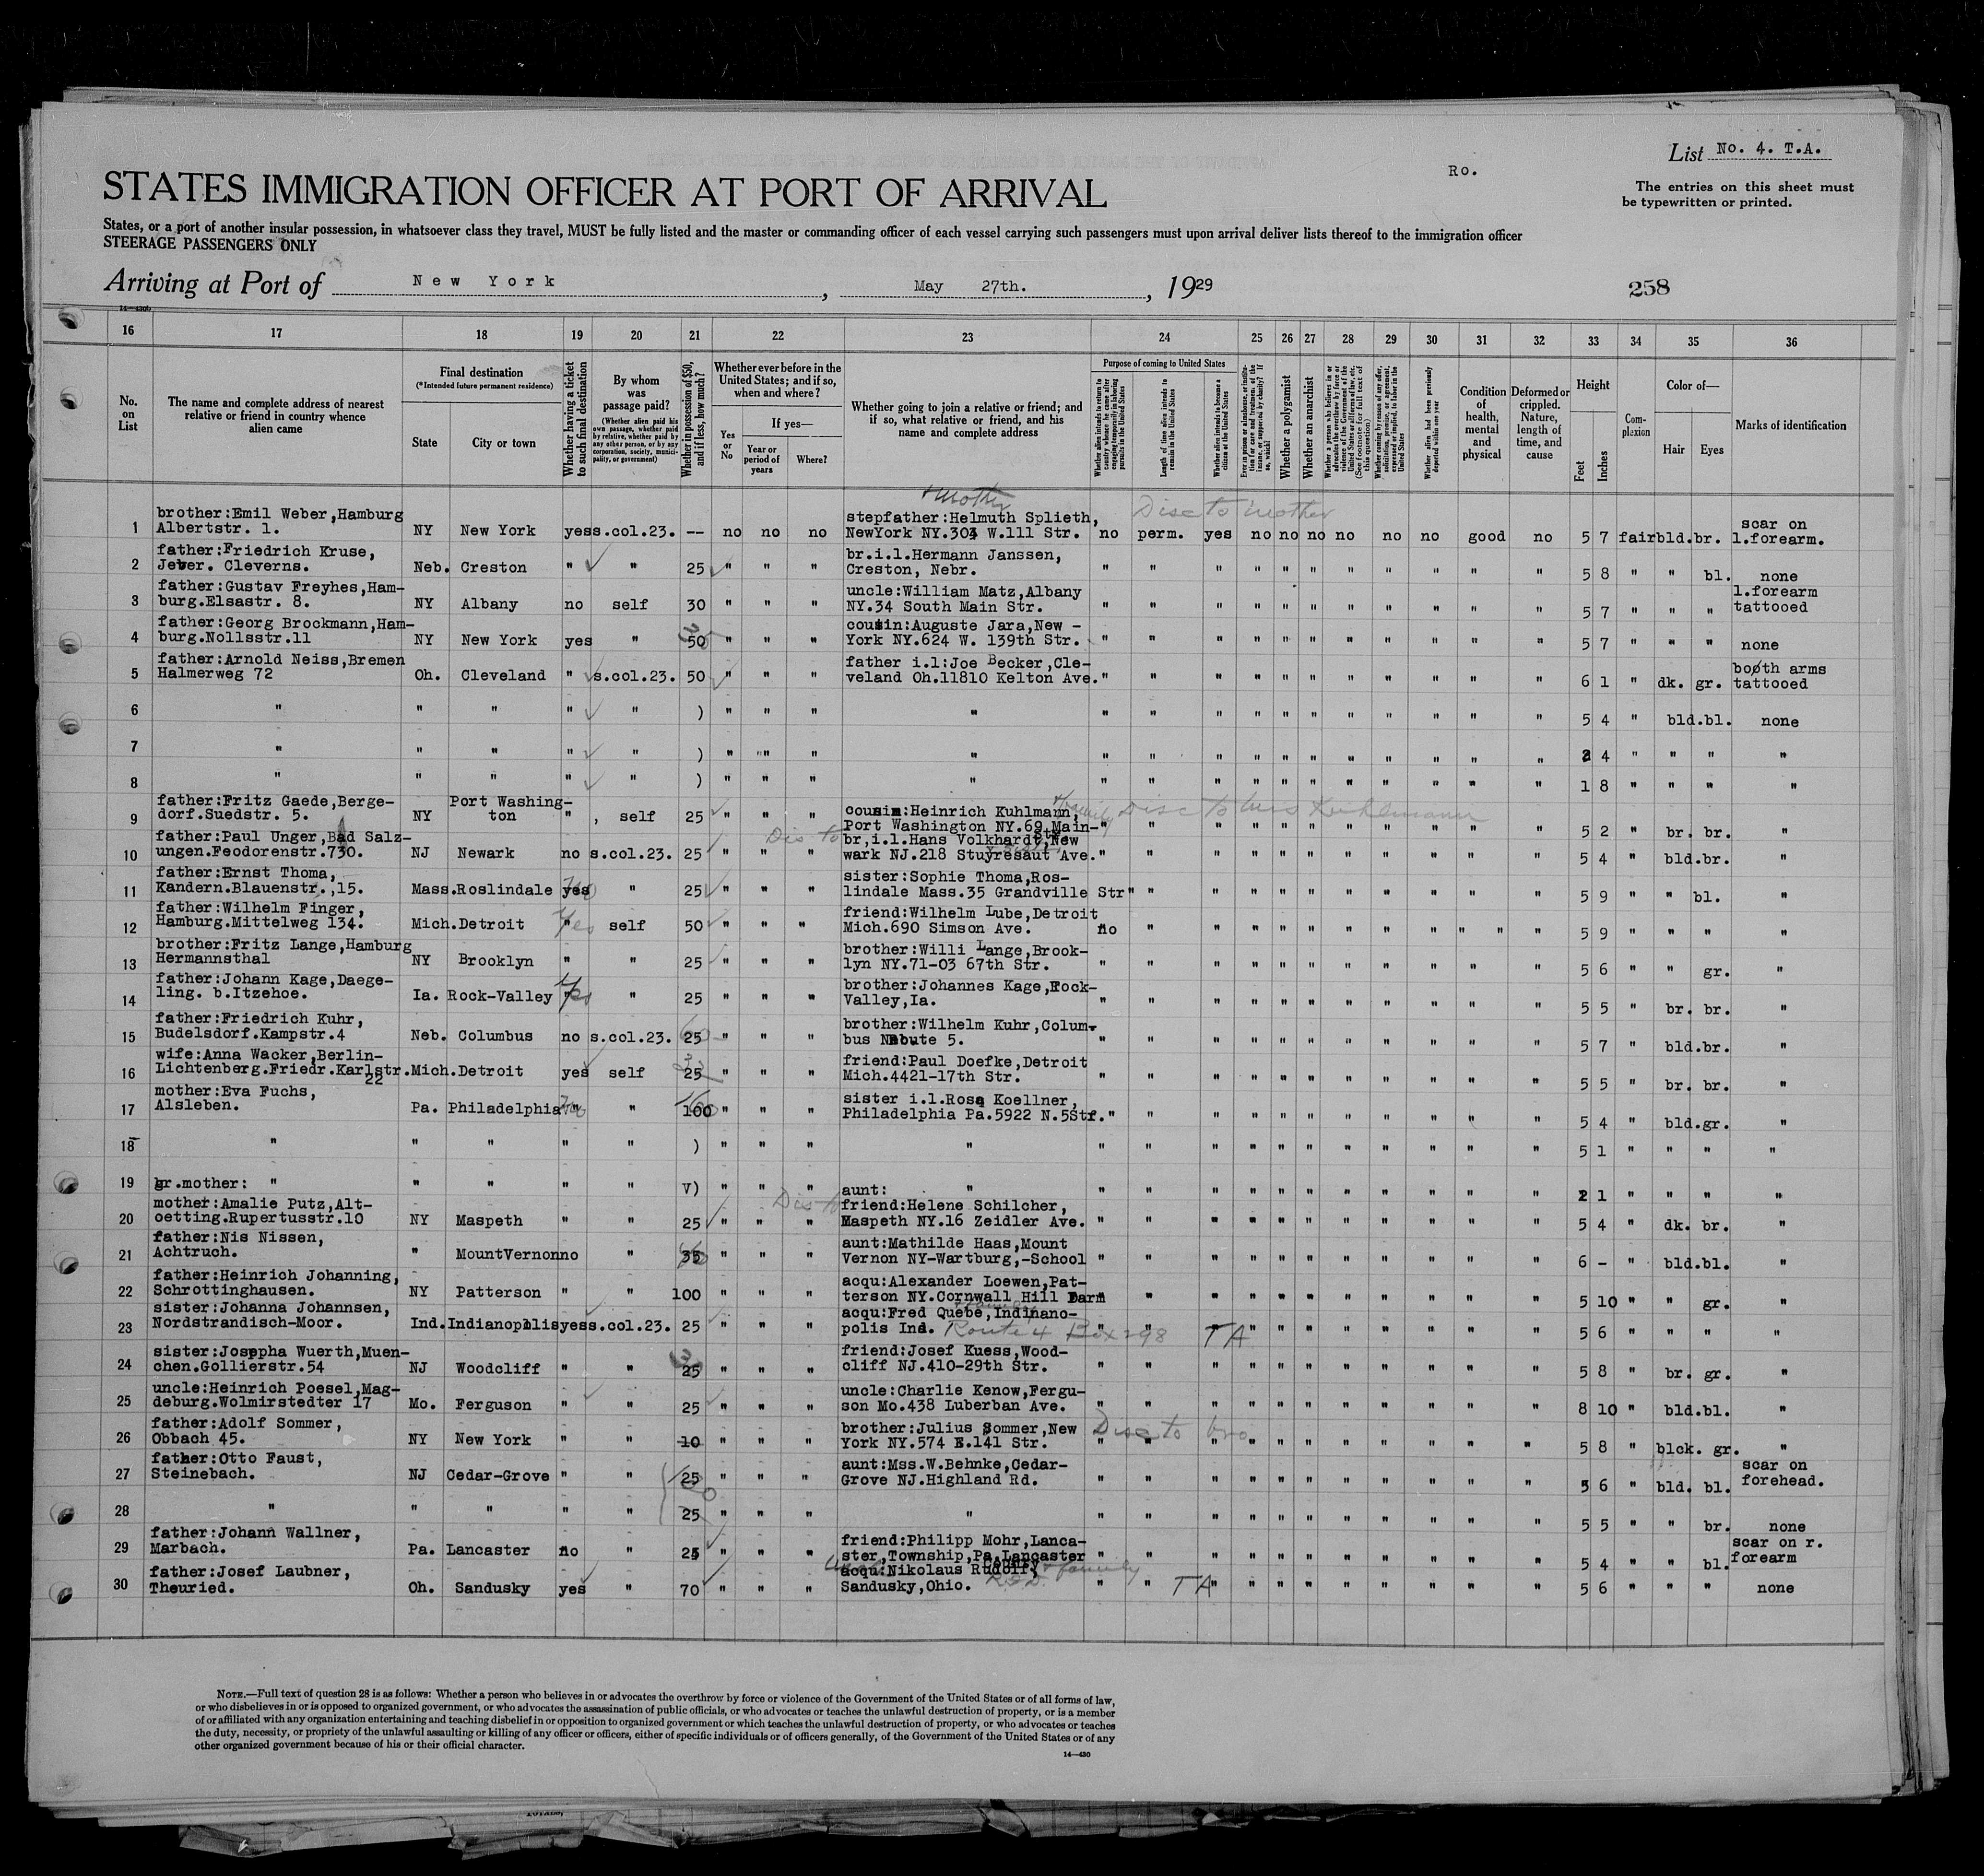 List No. 4. T.A.
Ro.
STATES IMMIGRATION OFFICER AT PORT OF ARRIVAL
The entries on this sheet must
be typewritten or printed.
States, or a port of another insular possession, in whatsoever class they travel, MUST be fully listed and the master or commanding officer of each vessel carrying such passengers must upon arrival deliver lists thereof to the immigration officer
STEERAGE PASSENGERS ONLY
Arriving at Port of New York, May 27th., 1929
258
16 17 18 19 20 21 22 23 24 25 26 27 28 29 30 31 32 33 34 35 36
No. on List
The name and complete address of nearest relative or friend in country whence alien came
Final destination
(*Intended future permanent residence)
State
City or town
Whether having a ticket to such final destination
By whom was passage paid?
(Whether alien paid his own passage, whether paid by relative, whether paid by any other person, or by any corporation, society, municipality, or government)
Whether in possession of $50, and if less, how much?
Whether ever before in the United States; and if so, when and where?
Yes or No
If yes—
Year or period of years
Where?
Whether going to join a relative or friend; and if so, what relative or friend, and his name and complete address
Purpose of coming to United States
Length of time alien intends to remain in the United States
Whether alien intends to become a citizen of the United States
Whether a polygamist
Whether an anarchist
Condition of health, mental and physical
Deformed or crippled. Nature, length of time, and cause
Height
Feet
Inches
Complexion
Color of—
Hair
Eyes
Marks of identification
+ mother
Disc to mother
1 brother:Emil Weber,Hamburg stepfather:Helmuth Splieth, scar on
Albertstr. 1. NY New York yes s.col.23. -- no no no NewYork NY.304 W.111 Str. no perm. yes no no no no no no good no 5 7 fair bld.br. l.forearm.
2 father:Friedrich Kruse, br.i.l.Hermann Janssen,
Jever. Cleverns. Neb. Creston " " 25 " " " Creston, Nebr. " " " " " " " " " " " 5 8 " " bl. none
3 father:Gustav Freyhes,Ham- uncle:William Matz,Albany l.forearm
burg.Elsastr. 8. NY Albany no self 30 " " " NY.34 South Main Str. " " " " " " " " " " " 5 7 " " " tattooed
4 father:Georg Brockmann,Ham- cousin:Auguste Jara,New -
burg.Nollsstr.11 NY New York yes " 50 " " " York NY.624 W. 139th Str. " " " " " " " " " " " 5 7 " " " none
5 father:Arnold Neiss,Bremen father i.l:Joe Becker,Cle- booth arms
Halmerweg 72 Oh. Cleveland " s.col.23. 50 " " " veland Oh.11810 Kelton Ave. " " " " " " " " " " " 6 1 " dk. gr. tattooed
6 " " " " " ) " " " " " " " " " " " " " " " 5 4 " bld.bl. none
7 " " " " " ) " " " " " " " " " " " " " " " 4 " " " "
8 " " " " " ) " " " " " " " " " " " " " " " 1 8 " " " "
9 father:Fritz Gaede,Berge- Port Washing- cousin:Heinrich Kuhlmann, + family Disc to Kuhlmann
dorf.Suedstr. 5. NY ton " , self 25 " " " Port Washington NY.69 Main- " " " " " " " " " " 5 2 " br. br. "
Str.
10 father:Paul Unger,Bad Salz- Dis to br,i.l.Hans Volkhardt,New
ungen.Feodorenstr.730. NJ Newark no s.col.23. 25 " " " wark NJ.218 Stuyresaut Ave. " " " " " " " " " " " 5 4 " bld.br. "
11 father:Ernst Thoma, sister:Sophie Thoma,Ros-
Kandern.Blauenstr.,15. Mass. Roslindale yes " 25 " " " lindale Mass.35 Grandville Str " " " " " " " " " " " 5 9 " " bl. "
12 father:Wilhelm Finger, friend:Wilhelm Lube,Detroit
Hamburg.Mittelweg 134. Mich. Detroit " yes self 50 " " " Mich.690 Simson Ave. no " " " " " " " " " " " 5 9 " " " "
13 brother:Fritz Lange,Hamburg brother:Willi Lange,Brook-
Hermannsthal NY Brooklyn " " 25 " " " lyn NY.71-03 67th Str. " " " " " " " " " " " 5 6 " " gr. "
14 father:Johann Kage,Daege- brother:Johannes Kage,Rock-
ling. b.Itzehoe. Ia. Rock-Valley yes " 25 " " " Valley,Ia. " " " " " " " " " " " 5 5 " br. br. "
15 father:Friedrich Kuhr, brother:Wilhelm Kuhr,Colum-
Budelsdorf.Kampstr.4 Neb. Columbus no s.col.23. 25 " " " bus 5. " " " " " " " " " " " 5 7 " bld.br. "
16 wife:Anna Wacker,Berlin- friend:Paul Doefke,Detroit
Lichtenberg.Friedr.Karlstr. 22 Mich. Detroit yes self 25 " " " Mich.4421-17th Str. " " " " " " " " " " " 5 5 " br. br. "
17 mother:Eva Fuchs, sister i.l.Rosa Koellner,
Alsleben. Pa. Philadelphia " " 100 " " " Philadelphia Pa.5922 N.5Str. " " " " " " " " " " " 5 4 " bld.gr. "
18 " " " " " ) " " " " " " " " " " " " " " " 5 1 " " " "
19 gr.mother: " " " " " V) " " " aunt: " " " " " " " " " " " " 2 1 " " " "
20 mother:Amalie Putz,Alt- Dis to friend:Helene Schilcher,
oetting.Rupertusstr.10 NY Maspeth " " 25 " " " Maspeth NY.16 Zeidler Ave. " " " " " " " " " " " 5 4 " dk. br. "
21 father:Nis Nissen, aunt:Mathilde Haas,Mount
Achtruch. " MountVernon no " 35 " " " Vernon NY-Wartburg,-School " " " " " " " " " " " 6 - " bld.bl. "
22 father:Heinrich Johanning, acqu:Alexander Loewen,Pat-
Schrottinghausen. NY Patterson " " 100 " " " terson NY.Cornwall Hill Farm " " " " " " " " " " 5 10 " " gr. "
23 sister:Johanna Johannsen, acqu:Fred Quebe,Indinano-
Nordstrandisch-Moor. Ind. Indianopolis yes s.col.23. 25 " " " polis Ind. Route 4 Box 298 TA " " " " " " " " 5 6 " " " "
24 sister:Joseppha Wuerth,Muen- friend:Josef Kuess,Wood-
chen.Gollierstr.54 NJ Woodcliff " " 25 " " " cliff NJ.410-29th Str. " " " " " " " " " " " 5 8 " br. gr. "
25 uncle:Heinrich Poesel,Mag- uncle:Charlie Kenow,Fergu-
deburg.Wolmirstedter 17 Mo. Ferguson " " 25 " " " son Mo.438 Luberban Ave. " " " " " " " " " " " 8 10 " bld.bl. "
26 father:Adolf Sommer, brother:Julius Sommer,New Disc to bro
Obbach 45. NY New York " " 10 " " " York NY.574 E.141 Str. " " " " " " " " " " " 5 8 " blck. gr. "
27 father:Otto Faust, aunt:Mss.W.Behnke,Cedar- scar on
Steinebach. NJ Cedar-Grove " " 25 " " " Grove NJ.Highland Rd. " " " " " " " " " " " 5 6 " bld. bl. forehead.
28 " " " " " 25 " " " " " " " " " " " " " " " 5 5 " " br. none
29 father:Johann Wallner, friend:Philipp Mohr,Lanca- scar on r.
Marbach. Pa. Lancaster no " 25 " " " ster,Township,Pa.Lancaster County " " " " " " " " " " " 5 4 " " bl. forearm
30 father:Josef Laubner, acqu:Nikolaus Rudolf, + family
Theuried. Oh. Sandusky yes " 70 " " " Sandusky,Ohio. R.F.D. " " TA " " " " " " " " " 5 6 " " " none
NOTE.—Full text of question 28 is as follows: Whether a person who believes in or advocates the overthrow by force or violence of the Government of the United States or of all forms of law,
or who disbelieves in or is opposed to organized government, or who advocates the assassination of public officials, or who advocates or teaches the unlawful destruction of property, or is a member
of or affiliated with any organization entertaining and teaching disbelief in or opposition to organized government or which teaches the unlawful destruction of property, or who advocates or teaches
the duty, necessity, or propriety of the unlawful assaulting or killing of any officer or officers, either of specific individuals or of officers generally, of the Government of the United States or of any
other organized government because of his or their official character.
14—430